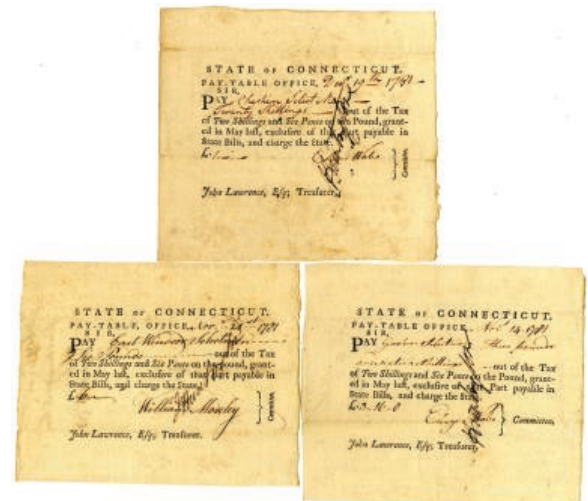 STATE OF CONNECTICUT.
PAY-TABLE OFFICE, 19th 1781
SIR,
PAY Select
Twenty Shillings out of the Tax
of Two Shillings and Six Pence on the Pound, grant-
ed in May last, exclusive of the Part payable in
State Bills, and charge the State.
Wales
Committee.
John Lawrence, Esq; Treasurer.
STATE OF CONNECTICUT.
PAY-TABLE OFFICE, 1781
SIR,
PAY East Windsor
Pounds out of the Tax
of Two Shillings and Six Pence on the Pound, grant-
ed in May last, exclusive of the Part payable in
State Bills, and charge the State.
William Mosely
Committee.
John Lawrence, Esq; Treasurer.
STATE OF CONNECTICUT.
PAY-TABLE OFFICE, Nov 14 1781
SIR,
PAY three pounds
out of the Tax
of Two Shillings and Six Pence on the Pound, grant-
ed in May last, exclusive of the Part payable in
State Bills, and charge the State.
Committee,
John Lawrence, Esq; Treasurer.